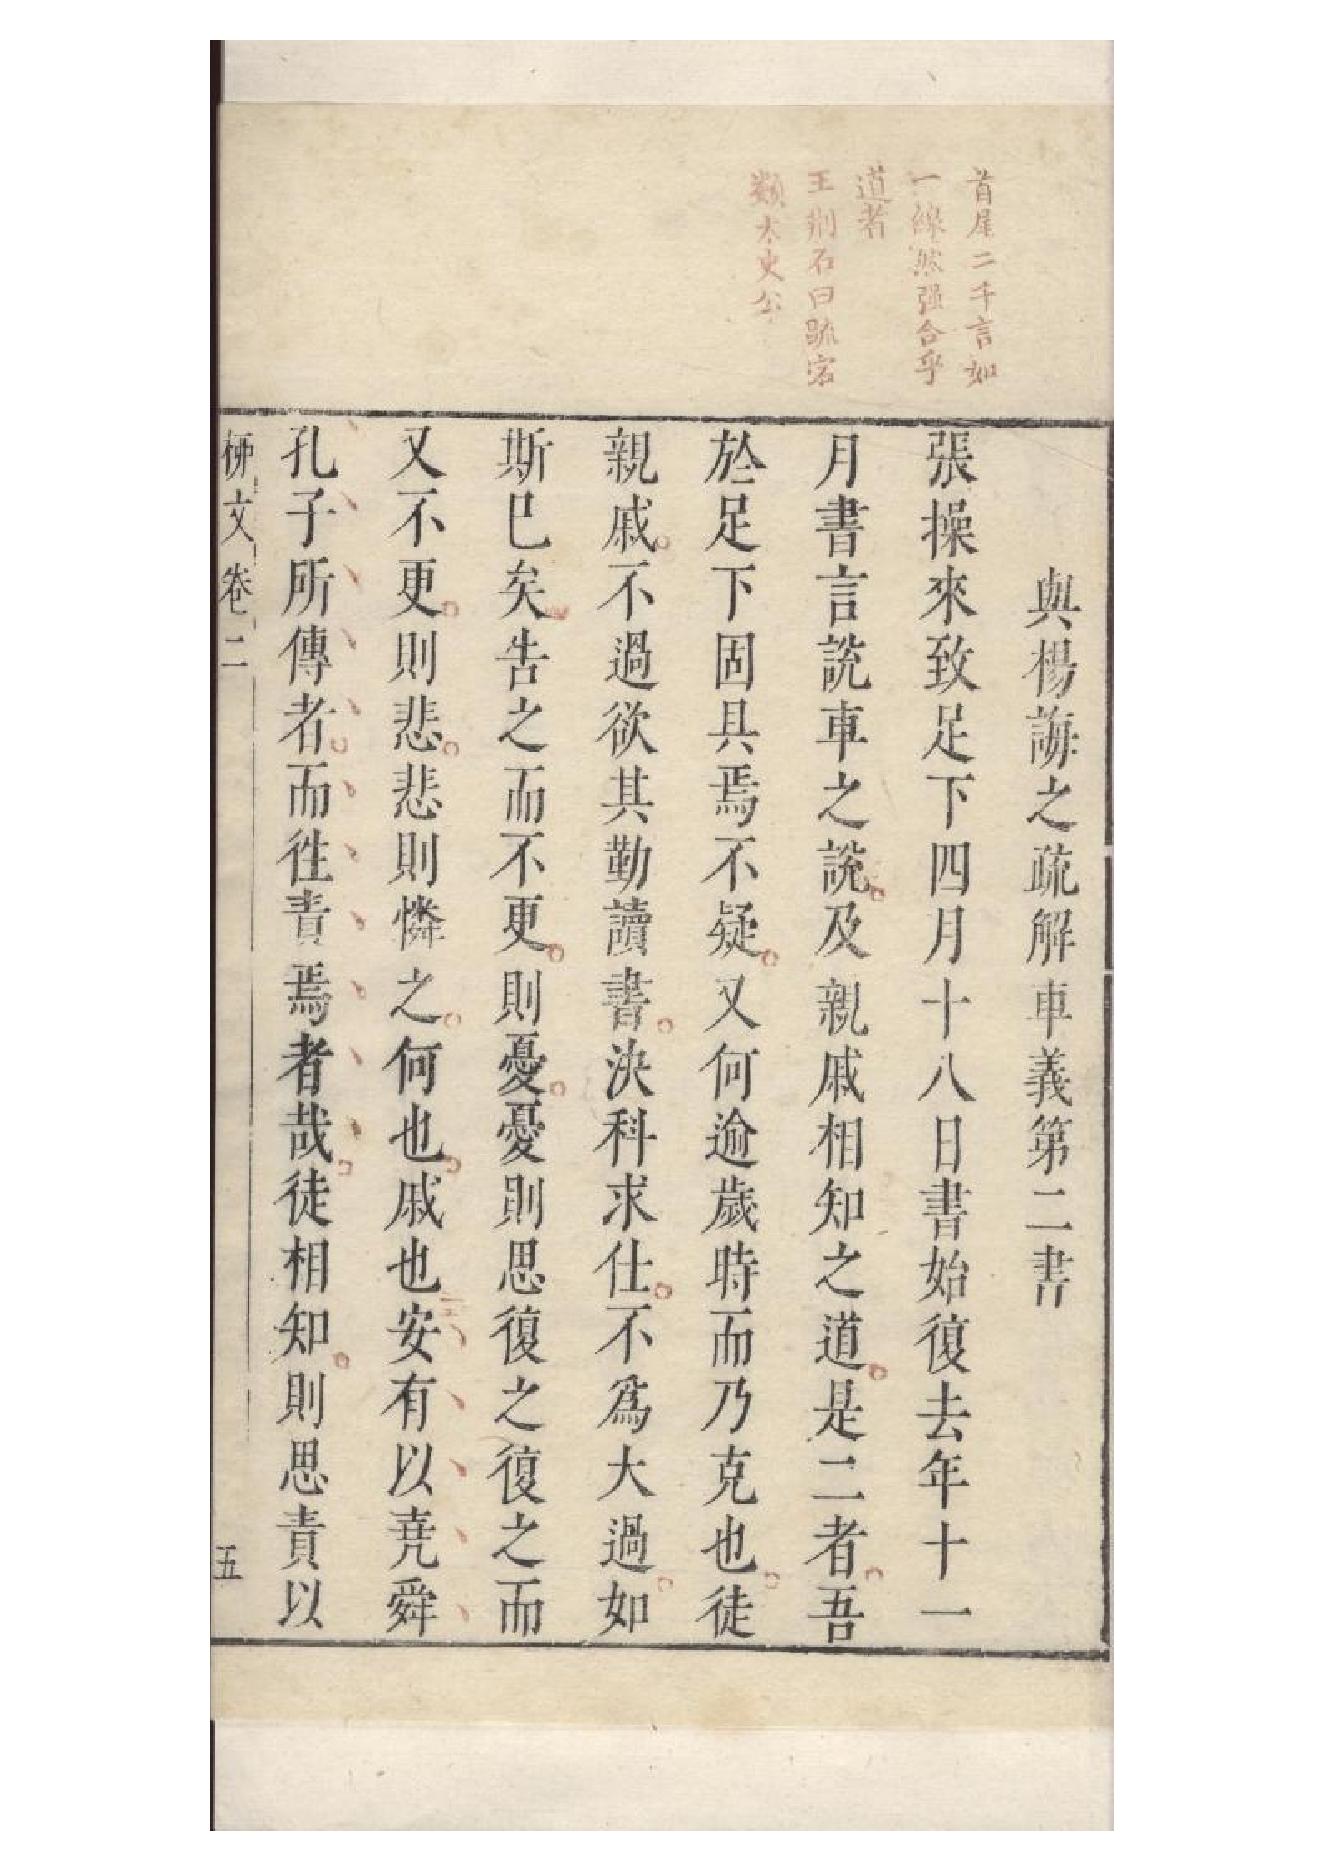 首尾二千言如
一線然强合乎
道者
王荆石曰疏宕
類太史公
與楊誨之疏解車義第二書
張操來致足下四月十八日書始復去年十一
月書言說車之說及親戚相知之道是二者吾
於足下固具焉不疑又何逾歲時而乃克也徒
親戚不過欲其勤讀書決科求仕不爲大過如
斯巳矣告之而不更則憂憂則思復之復之而
又不更則悲悲則憐之何也戚也安有以尭舜
孔子所傳者而徃責焉者哉徒相知則思責以
栁文卷二
五